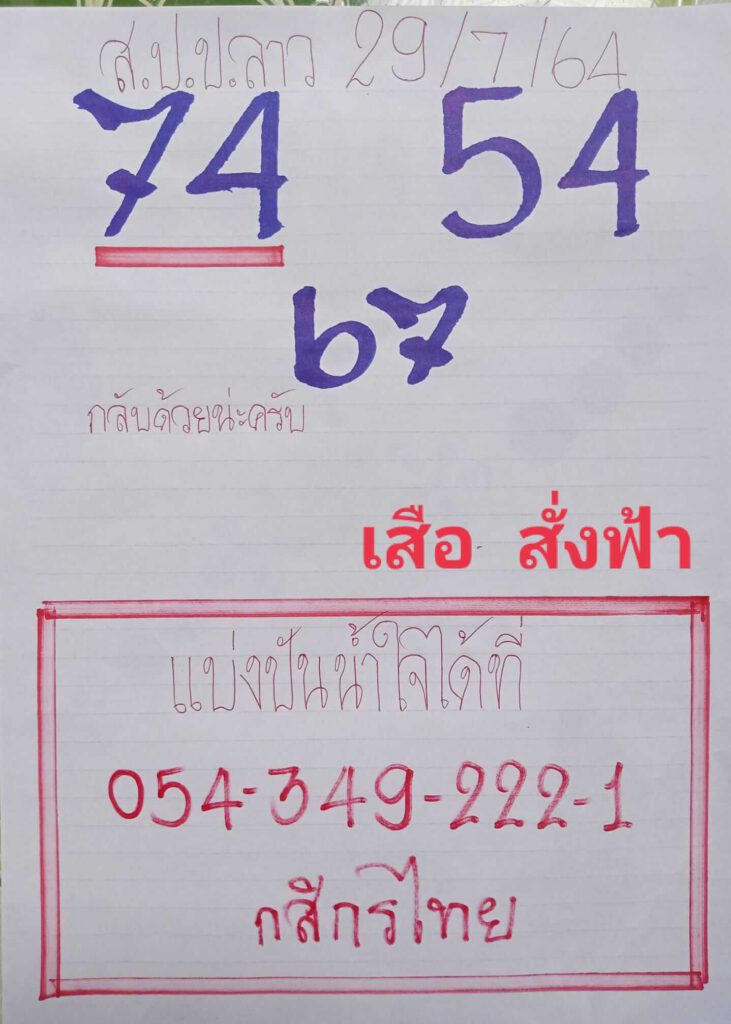 ส.ป.ป.ลาว 29/7/64
74 54
67
กลับด้วยน่ะครับ
เสือ สั่งฟ้า
แบ่งปันน้ำใจได้ที่
054-349-222-1
กสีกรไทย